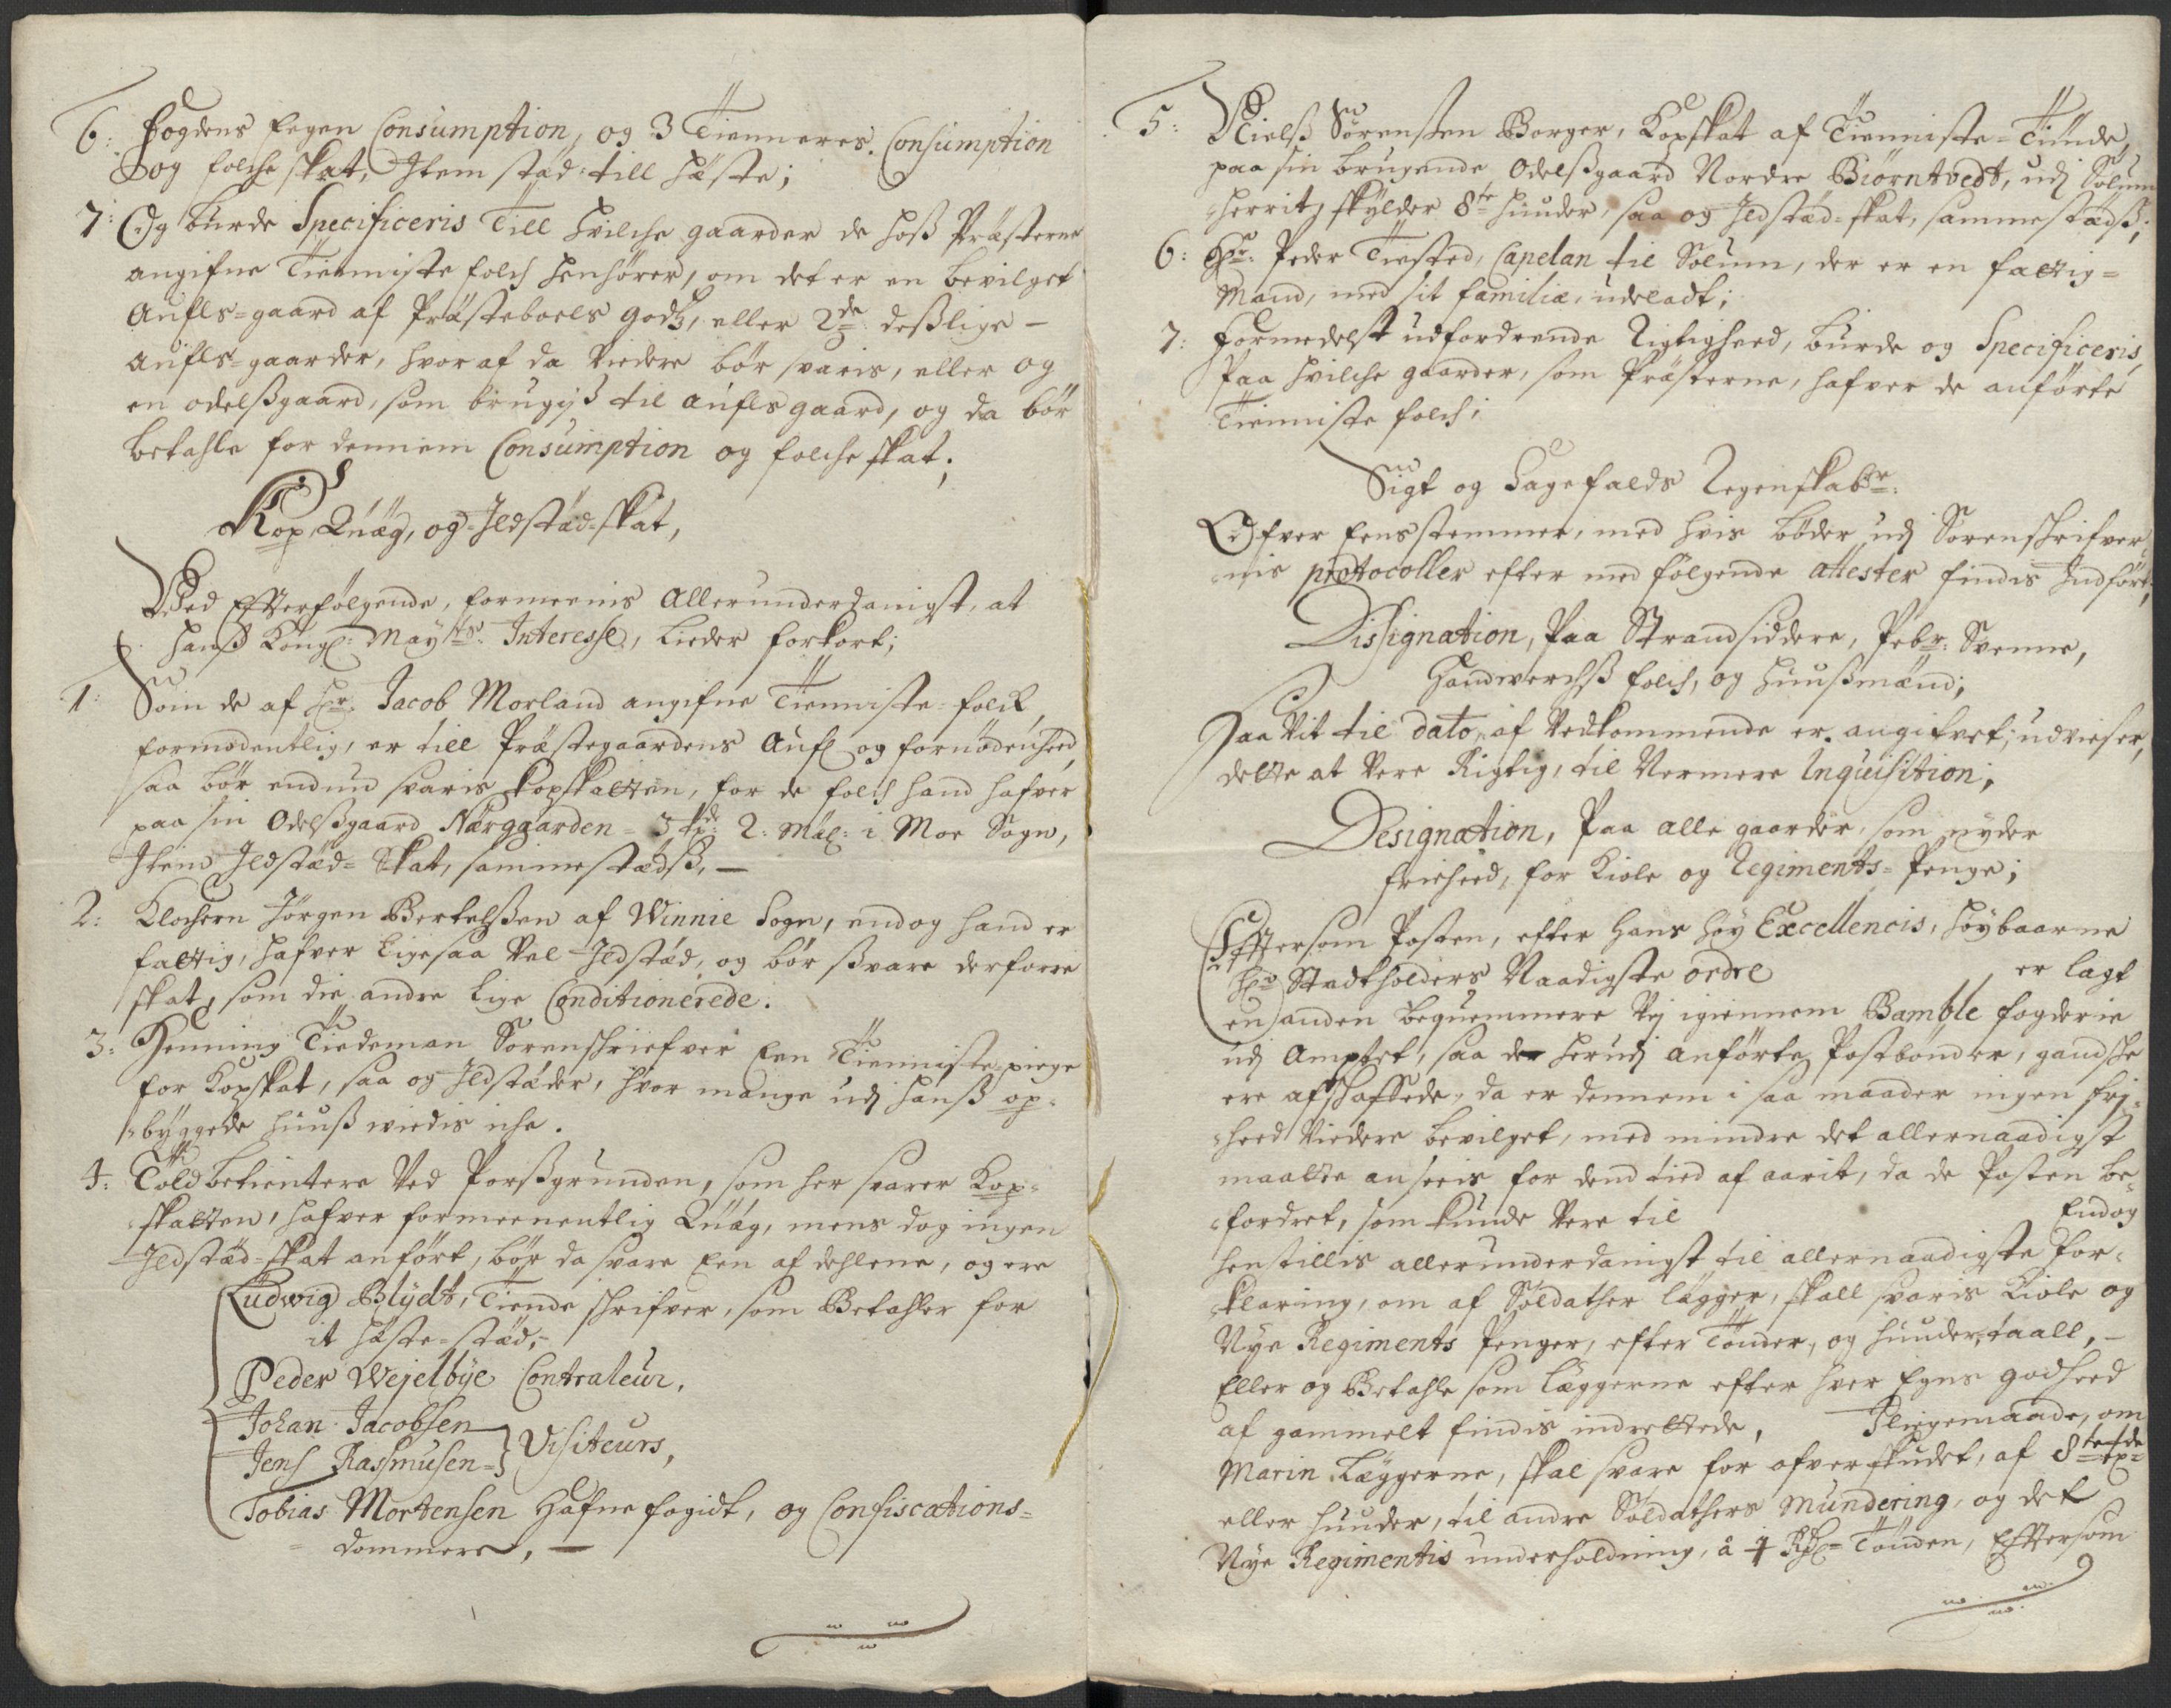 6: Fogdens Eegen Consumption, og 3 Tienneres Consumption
og folche skat, Item stæd till Hæste;
7: Og burde Specificeris Till hvilche gaarder de hoß Præsterne
angifne Tienniste folch henhører, om det er en bevilget
Aufls-gaard af Præsteboels godtz, eller 2de deßlige –
Aufls-gaarder, hvor af da Videre bør svaris, eller og
en odelßgaard, som brugiß til aufls gaard, og da bør
betahle for dennem Consumption og folche skat;
Kop, Qvæg, og Ildstæd-skat,
Ved Efterfølgende, formeenis Allerunderdanigst, at
Hanß Kongl: Mayts: Interesse, lieder forkort;
1: Som de af Hr: Jacob Morland angifne Tienniste-folck,
formodentlig, er till Præstegaardens Aufl og fornødenheed,
saa bør endnu svaris kopskatten, for de folch hand hafver
paa sin Odelßgaard Nærgaarden = 3 tpde: 2: Mæl: i Moe Sogn,
Item Ildstæd-Skat, sammestædß, –
2: Klochern Jørgen Bertelßen af Winnie Sogn, endog hand er
fattig, hafver ligesaa Vel Ildstæd, og bør ßvare derforre
skat, som die andre lige Conditionerede.
3: Henning Tiedeman Sorenskriefver Een Tienniste-piege
for Kopskat, saa og Ildstæder, hvor mange udj Hanß op-
byggede Huuß viedis iche.
4: Told betientere Ved Porßgrunden, som her svarer Kop-
skatten, hafver formeenentlig Qvæg, mens dog ingen
Ildstæd-skat anført, bør da svare Een af dehlene, og ere
Ludwig Blÿdt, Tiende skrifver, som Betahler for
it Hæste-stæd,-
Peder Wejelbye Contraleur,
Johan Jacobsen
Jens Rasmusen = Visiteurs,
Tobias Mortensen Hafnefogidt, og Confiscations-
dommere, –
5: Nielß Sørenßen Borger, Kopskat af Tienniste-Tiunde,
paa sin brugende Odelßgaard Nordre Biørntvedt, udj Solum
herrit, skylder 8te Huuder, saa og Ildstæd-skat, sammestædß;
6: Hr: Peder Tirsted, Capelan til Solum, der er en fattig-
Mand, med sit familiæ, udeladt;
7: Formedelst udfordrende Rigtigheed, burde og Specificeris,
Paa hvilche gaarder, som Præsterne, hafver de anførte
Tienniste folch;
Sigt og Sagefalds Regenskaber:
Ofver Eensstemmer, med hvis bøder udj Sorenskrifver-
nis protocoller efter med følgende attester findis Indført,
Dissignation, Paa Strandsiddere, Pebr: Svenne,
Handwerchß folch, og Huußmænd;
Saa Vit til dato, af Vedkommende er angifvet, udviser,
dette at Vere Rigtig, til Nermere Inquisition;
Designation, Paa alle gaarder, som nyder
frieheed, for Kiole og Regiments-Penge;
Eftersom Posten, efter Hans Høy Excellencis, Høybaarne
Hr: Stadtholders Naadigste ordre er lagt
en anden bequemmere Vej igiennem Bamble fogderie
udj Amptet, saa der herudj anførte Postbønder, gandske
ere afskaffede, da er dennem i saa maader ingen frj-
heed Videre bevilget, med mindre det allernaadigst
maatte anseeis for dend tied af aarit, da de Posten be-
fordret, som kunde Vere til Endog
henstillis allerunderdanigst til allernaadigste For-
klaring, om af Soldather lægger, skall svaris Kiole og
Nye Regiments Penger, efter Tønder, og huudertaall, –
Eller og Betahle som læggerne efter hver Egns godheed
af gammelt findis indrettede, Iligemaade, om
Marin Læggerne, skal svare for ofverskudet, af 8te tpde
eller huuder, til andre Soldathers Mundering, og det
Nye Regimentis underholdning, à 4 Rdl = Tønden, Eftersom